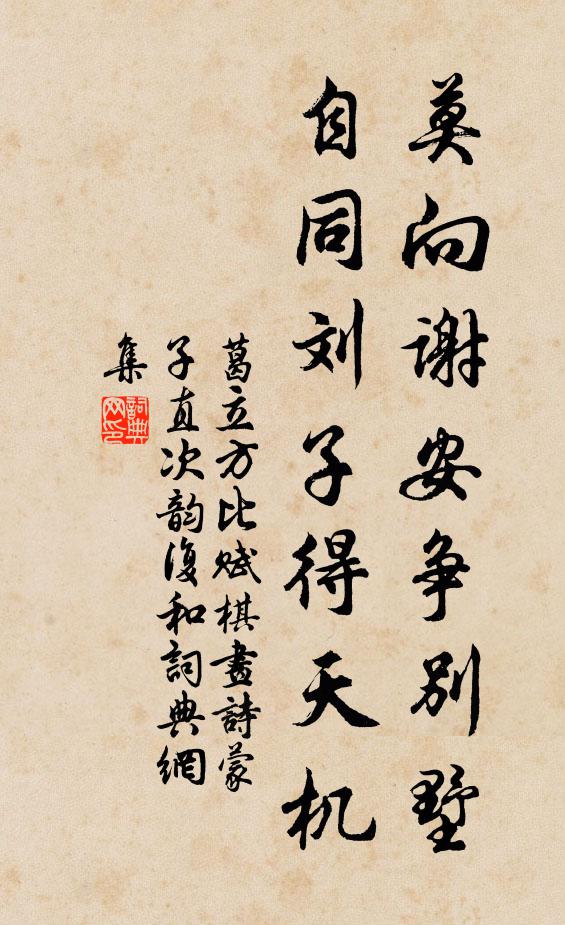 莫向谢安争别墅
自同刘子得天机
葛立方比赋棋畫詩蒙
子直次韵復和詞典網
集
詞典网印